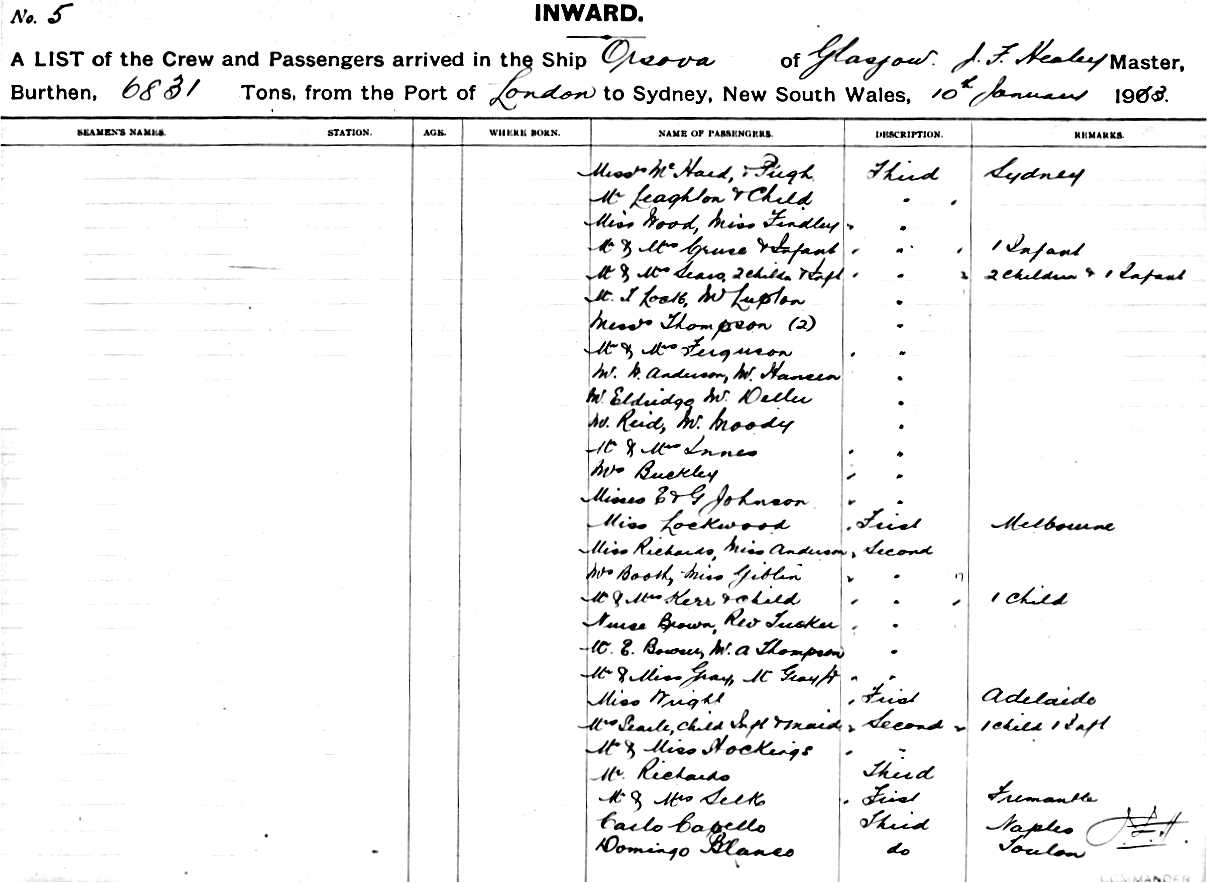 No. 5
INWARD.
A LIST of the Crew and Passengers arrived in the Ship Orsova of Glasgow. J. F. Healey Master,
Burthen, 6831 Tons, from the Port of London to Sydney, New South Wales, 10th January 1903.
SEAMEN'S NAMES. STATION. AGE. WHERE BORN. NAME OF PASSENGERS. DESCRIPTION. REMARKS.
Third Sydney
Mr Leaghton & Child "
Miss Wood, Miss Findley "
Mr & Mrs Cruse & Infant " 1 Infant
Mr & Mrs Sears, 2 Childn & Inft " 2 Children & 1 Infant
Mr. T Lock, Mr Lupton "
Messrs Thompson (2) "
Mr & Mrs Ferguson "
Mr. W. Anderson, Mr. Hansen "
Mr Eldridge Mr. Deller "
Mr. Reid, Mr. Moody "
Mr & Mrs Innes "
Mrs Buckley "
Misses E & G Johnson "
Miss Lockwood First Melbourne
Miss Richards, Miss Anderson Second
Mrs Booth, Miss Giblin "
Mr & Mrs Kerr & Child " 1 Child
Nurse Brown, Rev Tucker "
Mr. E. Mr. A Thompson "
Mr & Miss Gray, Mr Gray "
Miss Wright First Adelaide
Mrs Searle, Child Inft & maid Second 1 Child 1 Inft
Mr & Miss Hockings "
Mr. Richards Third
Mr & Mrs Selk First Fremantle
Carlo Capello Third Naples
Domingo Blanco do Toulon
COMMANDER